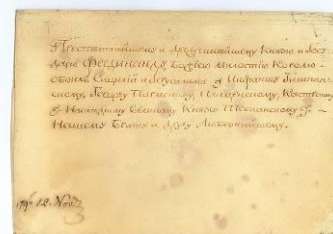 Пресветлейшему и Державнейшему Князю и Госу-
дарю Фердинанду Божиею милостию Королю
обоих Сицилий и Иерусалима, Инфанту Гишпан-
скому, Герцогу Пармскому, Пиаченскому, Кастро
Наследному Великому Князю Тосканскому
Нашему Брату и Другу Любезнейшему.
12. Нояб.